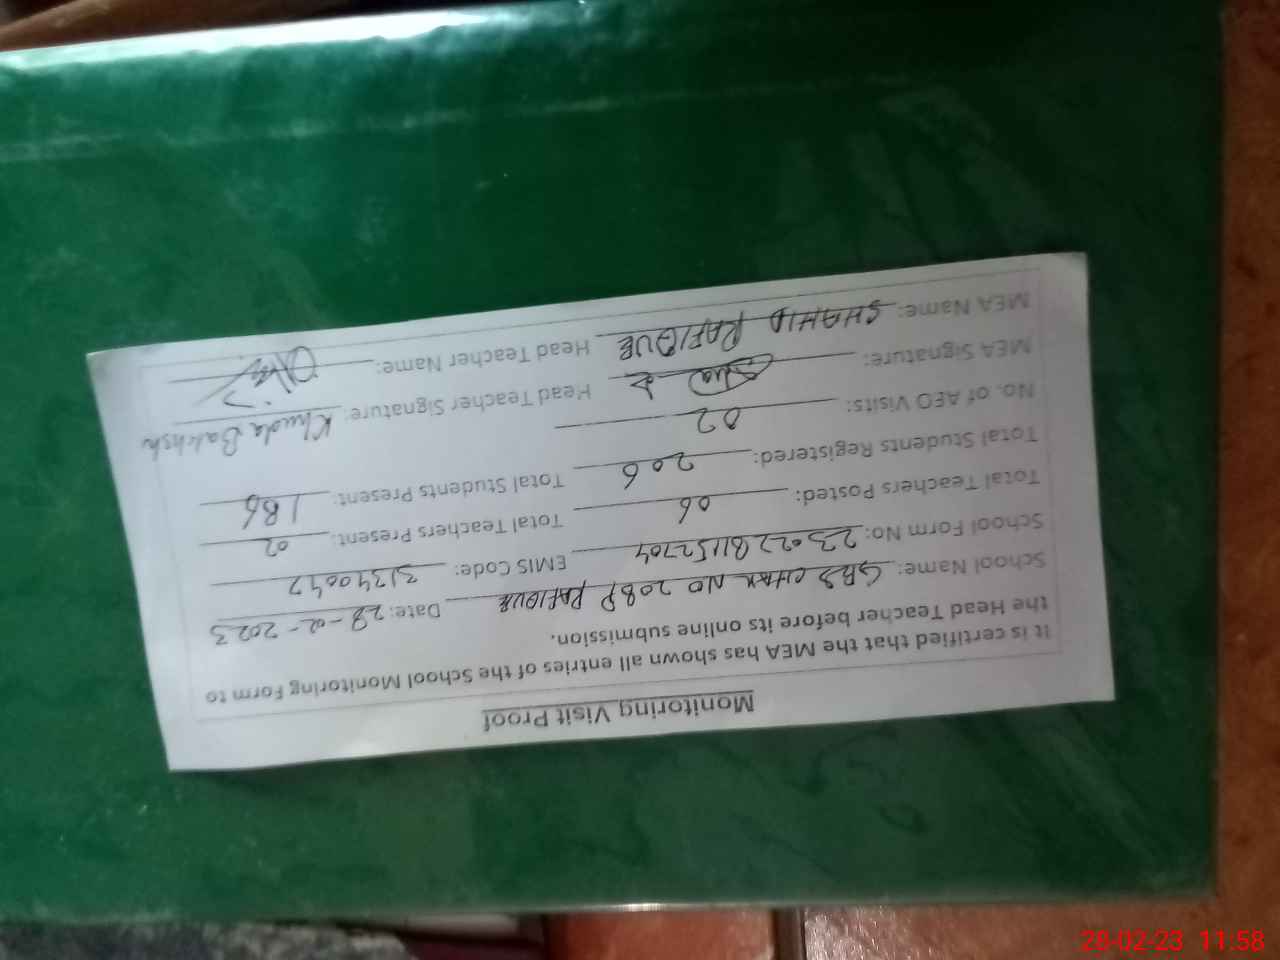 Monitoring Visit Proof
It is certified that the MEA has shown all entries of the School Monitoring Form to
the Head Teacher before its online submission.
School Name: GBS CHAK NO 20BP RAFIQUE Date: 28-02-2023
School Form No: 2302281152704 EMIS Code: 31340047
Total Teachers Posted: 06 Total Teachers Present: 02
Total Students Registered: 206 Total Students Present: 186
No. of AEO Visits: 02
MEA Signature: Head Teacher Signature: Khuda Bakhsh
MEA Name: SHAHID RAFIQUE Head Teacher Name:
28-02-23 11:58